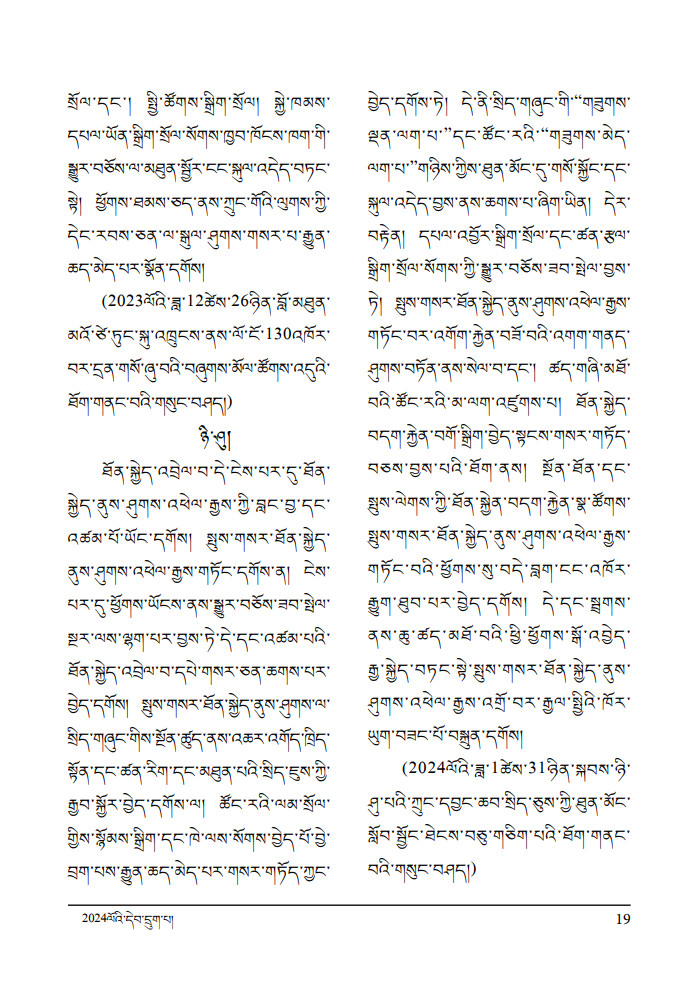 སྲོལ་དང་། སྤྱི་ཚོགས་སྒྲིག་སྲོལ། སྐྱེ་ཁམས་
དཔལ་ཡོན་སྒྲིག་སྲོལ་སོགས་ཁྱབ་ཁོངས་ཁག་གི་
སྒྱུར་བཅོས་ལ་མཐུན་སྦྱོར་ངང་སྐུལ་འདེད་བཏང་
སྟེ། ཕྱོགས་ཐམས་ཅད་ནས་ཀྲུང་གོའི་ལུགས་ཀྱི་
དེང་རབས་ཅན་ལ་སྒུལ་ཤུགས་གསར་པ་རྒྱུན་
ཆད་མེད་པར་སྣོན་དགོས།
(2023ལོའི་ཟླ་12ཚེས་26ཉིན་བློ་མཐུན་
མའོ་ཙེ་ཏུང་སྐུ་འཁྲུངས་ནས་ལོ་ངོ་130འཁོར་
བར་དྲན་གསོ་ཞུ་བའི་བཞུགས་མོལ་ཚོགས་འདུའི་
ཐོག་གནང་བའི་གསུང་བཤད།)
ཉི་ཤུ།
ཐོན་སྐྱེད་འབྲེལ་བ་དེ་ངེས་པར་དུ་ཐོན་
སྐྱེད་ནུས་ཤུགས་འཕེལ་རྒྱས་ཀྱི་བླང་བྱ་དང་
འཚམ་པོ་ཡོང་དགོས། སྤུས་གསར་ཐོན་སྐྱེད་
ནུས་ཤུགས་འཕེལ་རྒྱས་གཏོང་དགོས་ན། ངེས་
པར་དུ་ཕྱོགས་ཡོངས་ནས་སྒྱུར་བཅོས་ཟབ་སྤེལ་
སྔར་ལས་ལྷག་པར་བྱས་ཏེ་དེ་དང་འཚམ་པའི་
ཐོན་སྐྱེད་འབྲེལ་བ་དཔེ་གསར་ཅན་ཆགས་པར་
བྱེད་དགོས། སྤུས་གསར་ཐོན་སྐྱེད་ནུས་ཤུགས་ལ་
སྲིད་གཞུང་གིས་སྔོན་ཚུད་ནས་འཆར་འགོད་ཁྲིད་
སྟོན་དང་ཚན་རིག་དང་མཐུན་པའི་སྲིད་ཇུས་ཀྱི་
རྒྱབ་སྐྱོར་བྱེད་དགོས་ལ། ཚོང་རའི་ལམ་སྲོལ་
གྱིས་སྙོམས་སྒྲིག་དང་ཁེ་ལས་སོགས་བྱེད་པོ་བྱེ་
བྲག་པས་རྒྱུན་ཆད་མེད་པར་གསར་གཏོད་ཀྱང་
བྱེད་དགོས་ཏེ། དེ་ནི་སྲིད་གཞུང་གི་“གཟུགས་
ལྡན་ལག་པ་”དང་ཚོང་རའི་“གཟུགས་མེད་
ལག་པ་”གཉིས་ཀྱིས་ཐུན་མོང་དུ་གསོ་སྐྱོང་དང་
སྐུལ་འདེད་བྱས་ནས་ཆགས་པ་ཞིག་ཡིན། དེར་
བརྟེན། དཔལ་འབྱོར་སྒྲིག་སྲོལ་དང་ཚན་རྩལ་
སྒྲིག་སྲོལ་སོགས་ཀྱི་སྒྱུར་བཅོས་ཟབ་སྤེལ་བྱས་
ཏེ། སྤུས་གསར་ཐོན་སྐྱེད་ནུས་ཤུགས་འཕེལ་རྒྱས་
གཏོང་བར་འགོག་རྐྱེན་བཟོ་བའི་འགག་གནད་
ཤུགས་བཏོན་ནས་སེལ་བ་དང་། ཚད་གཞི་མཐོ་
བའི་ཚོང་རའི་མ་ལག་འཛུགས་པ། ཐོན་སྐྱེད་
བདག་རྐྱེན་བགོ་སྒྲིག་བྱེད་སྟངས་གསར་གཏོད་
བཅས་བྱས་པའི་ཐོག་ནས། སྔོན་ཐོན་དང་
སྤུས་ལེགས་ཀྱི་ཐོན་སྐྱེན་བདག་རྐྱེན་སྣ་ཚོགས་
སྤུས་གསར་ཐོན་སྐྱེད་ནུས་ཤུགས་འཕེལ་རྒྱས་
གཏོང་བའི་ཕྱོགས་སུ་བདེ་བླག་ངང་འཁོར་
རྒྱུག་ཐུབ་པར་བྱེད་དགོས། དེ་དང་སྦྲགས་
ནས་ཆུ་ཚད་མཐོ་བའི་ཕྱི་ཕྱོགས་སྒོ་འབྱེད་
རྒྱ་སྐྱེད་བཏང་སྟེ་སྤུས་གསར་ཐོན་སྐྱེད་ནུས་
ཤུགས་འཕེལ་རྒྱས་འགྲོ་བར་རྒྱལ་སྤྱིའི་ཁོར་
ཡུག་བཟང་པོ་བསྐྲུན་དགོས།
(2024ལོའི་ཟླ་1ཚེས་31ཉིན་སྐབས་ཉི་
ཤུ་པའི་ཀྲུང་དབྱང་ཆབ་སྲིད་ཅུས་ཀྱི་ཐུན་མོང་
སློབ་སྦྱོང་ཐེངས་བཅུ་གཅིག་པའི་ཐོག་གནང་
བའི་གསུང་བཤད།)
2024ལོའི་དེབ་དྲུག་པ། 19